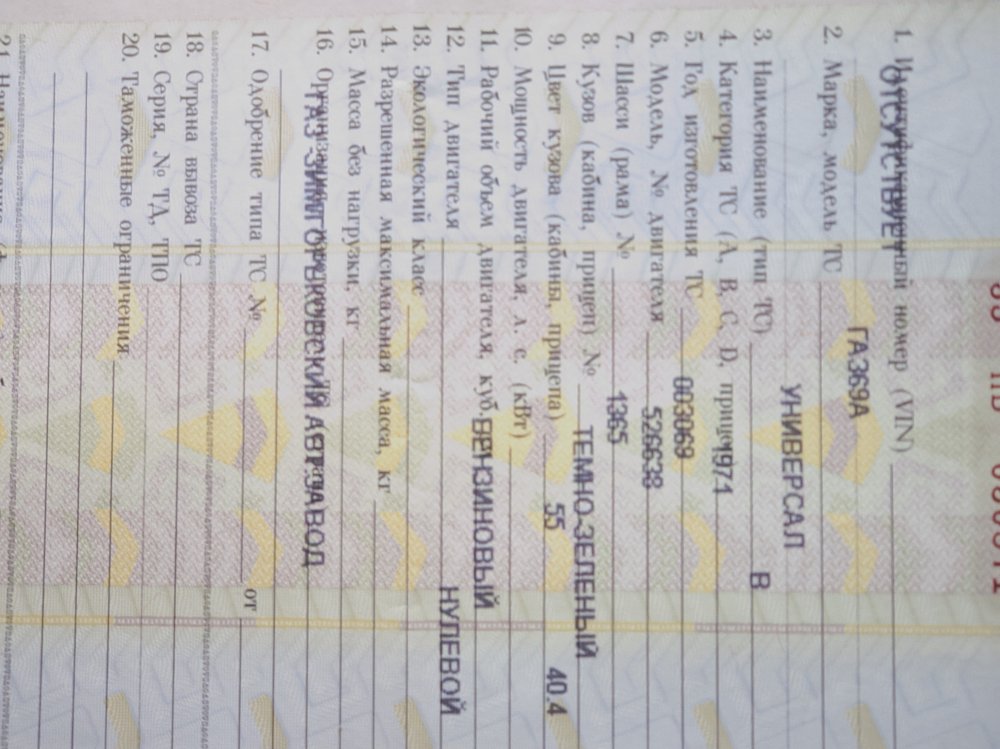 1. Идентификационный номер (VIN)
ОТСУТСТВУЕТ
2. Марка, модель ТС
ГАЗ69А
УНИВЕРСАЛ
3. Наименование (тип ТС)
В
4. Категория ТС (А, В, С, D, прицеп)
1971
5. Год изготовления ТС
003069
6. Модель, № двигателя
526638
7. Шасси (рама) №
1365
8. Кузов (кабина, прицеп) №
ТЕМНО-ЗЕЛЕНЫЙ
9. Цвет кузова (кабины, прицепа)
55 40.4
10. Мощность двигателя, л. с. (кВт)
11. Рабочий объем двигателя, куб.
БЕНЗИНОВЫЙ
12. Тип двигателя
НУЛЕВОЙ
13. Экологический класс
14. Разрешенная максимальная масса, кг
15. Масса без нагрузки, кг
16.
ГАЗ
АВТ.ЗАВОД
17. Одобрение типа ТС № от
18. Страна вывоза ТС
19. Серия, № ТД, ТПО
20. Таможенные ограничения
21.